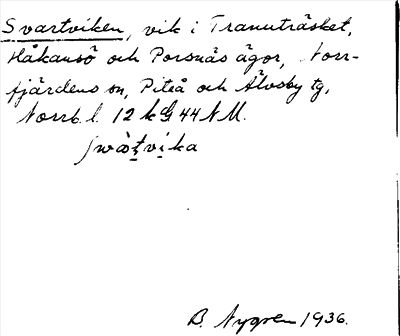 Svartviken, vik i Tranuträsket,
Håkansö och Porsnäs ägor, Norr-
fjärdens sn, Piteå och Älvsby tg,
Norrb. l. 12 k G 44 NM.
B. Nygren 1936.